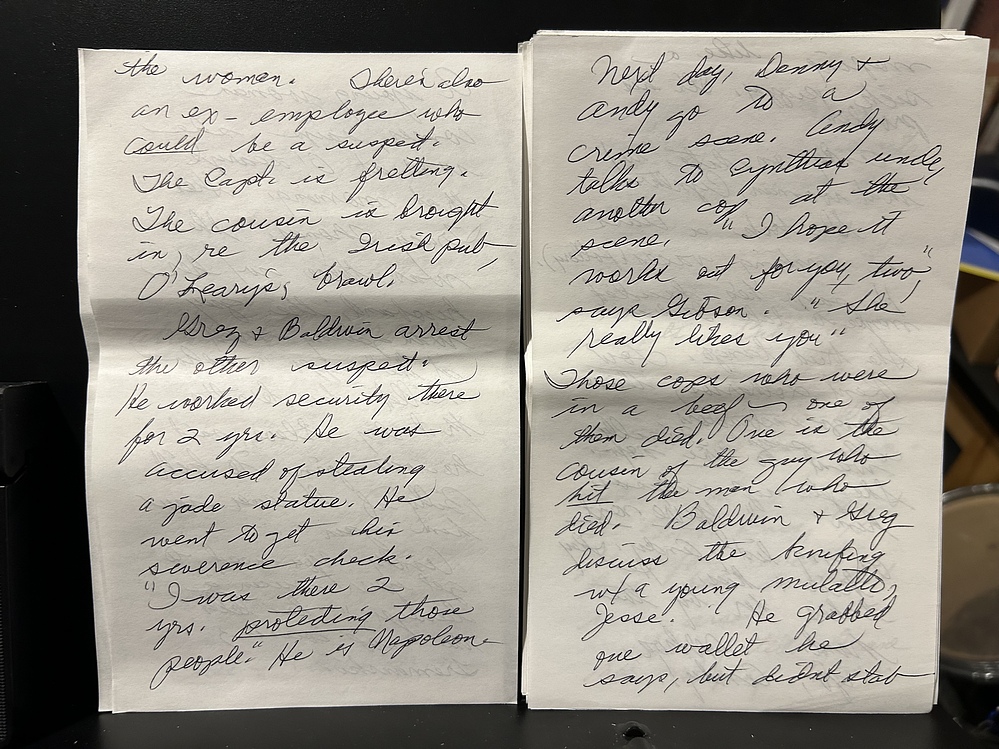 the women. There's also
an ex-employee who
could be a suspect.
The Capt. is fretting.
The cousin is brought
in, re the Irish pub,
O'Learys, brawl.
Greg & Baldwin arrest
the other suspect.
He worked security there
for 2 yrs. He was
accused of stealing
a jade statue. He
went to get his
severence check.
"I was there 2
yrs. protecting those
people." He is Napoleon
Next day, Danny &
Andy go to a
crime scene. Andy
talks to Cynthias uncle,
another cop at the
scene. "I hope it
works out for you two",
says Gibson. "She
really likes you"
Those cops who were
in a beef – one of
them died. One is the
cousin of the guy who
hit the man who
died. Baldwin & Greg
discuss the knifing
w/ a young mulatto,
Jesse. He grabbed
one wallet he
says, but didnt stab